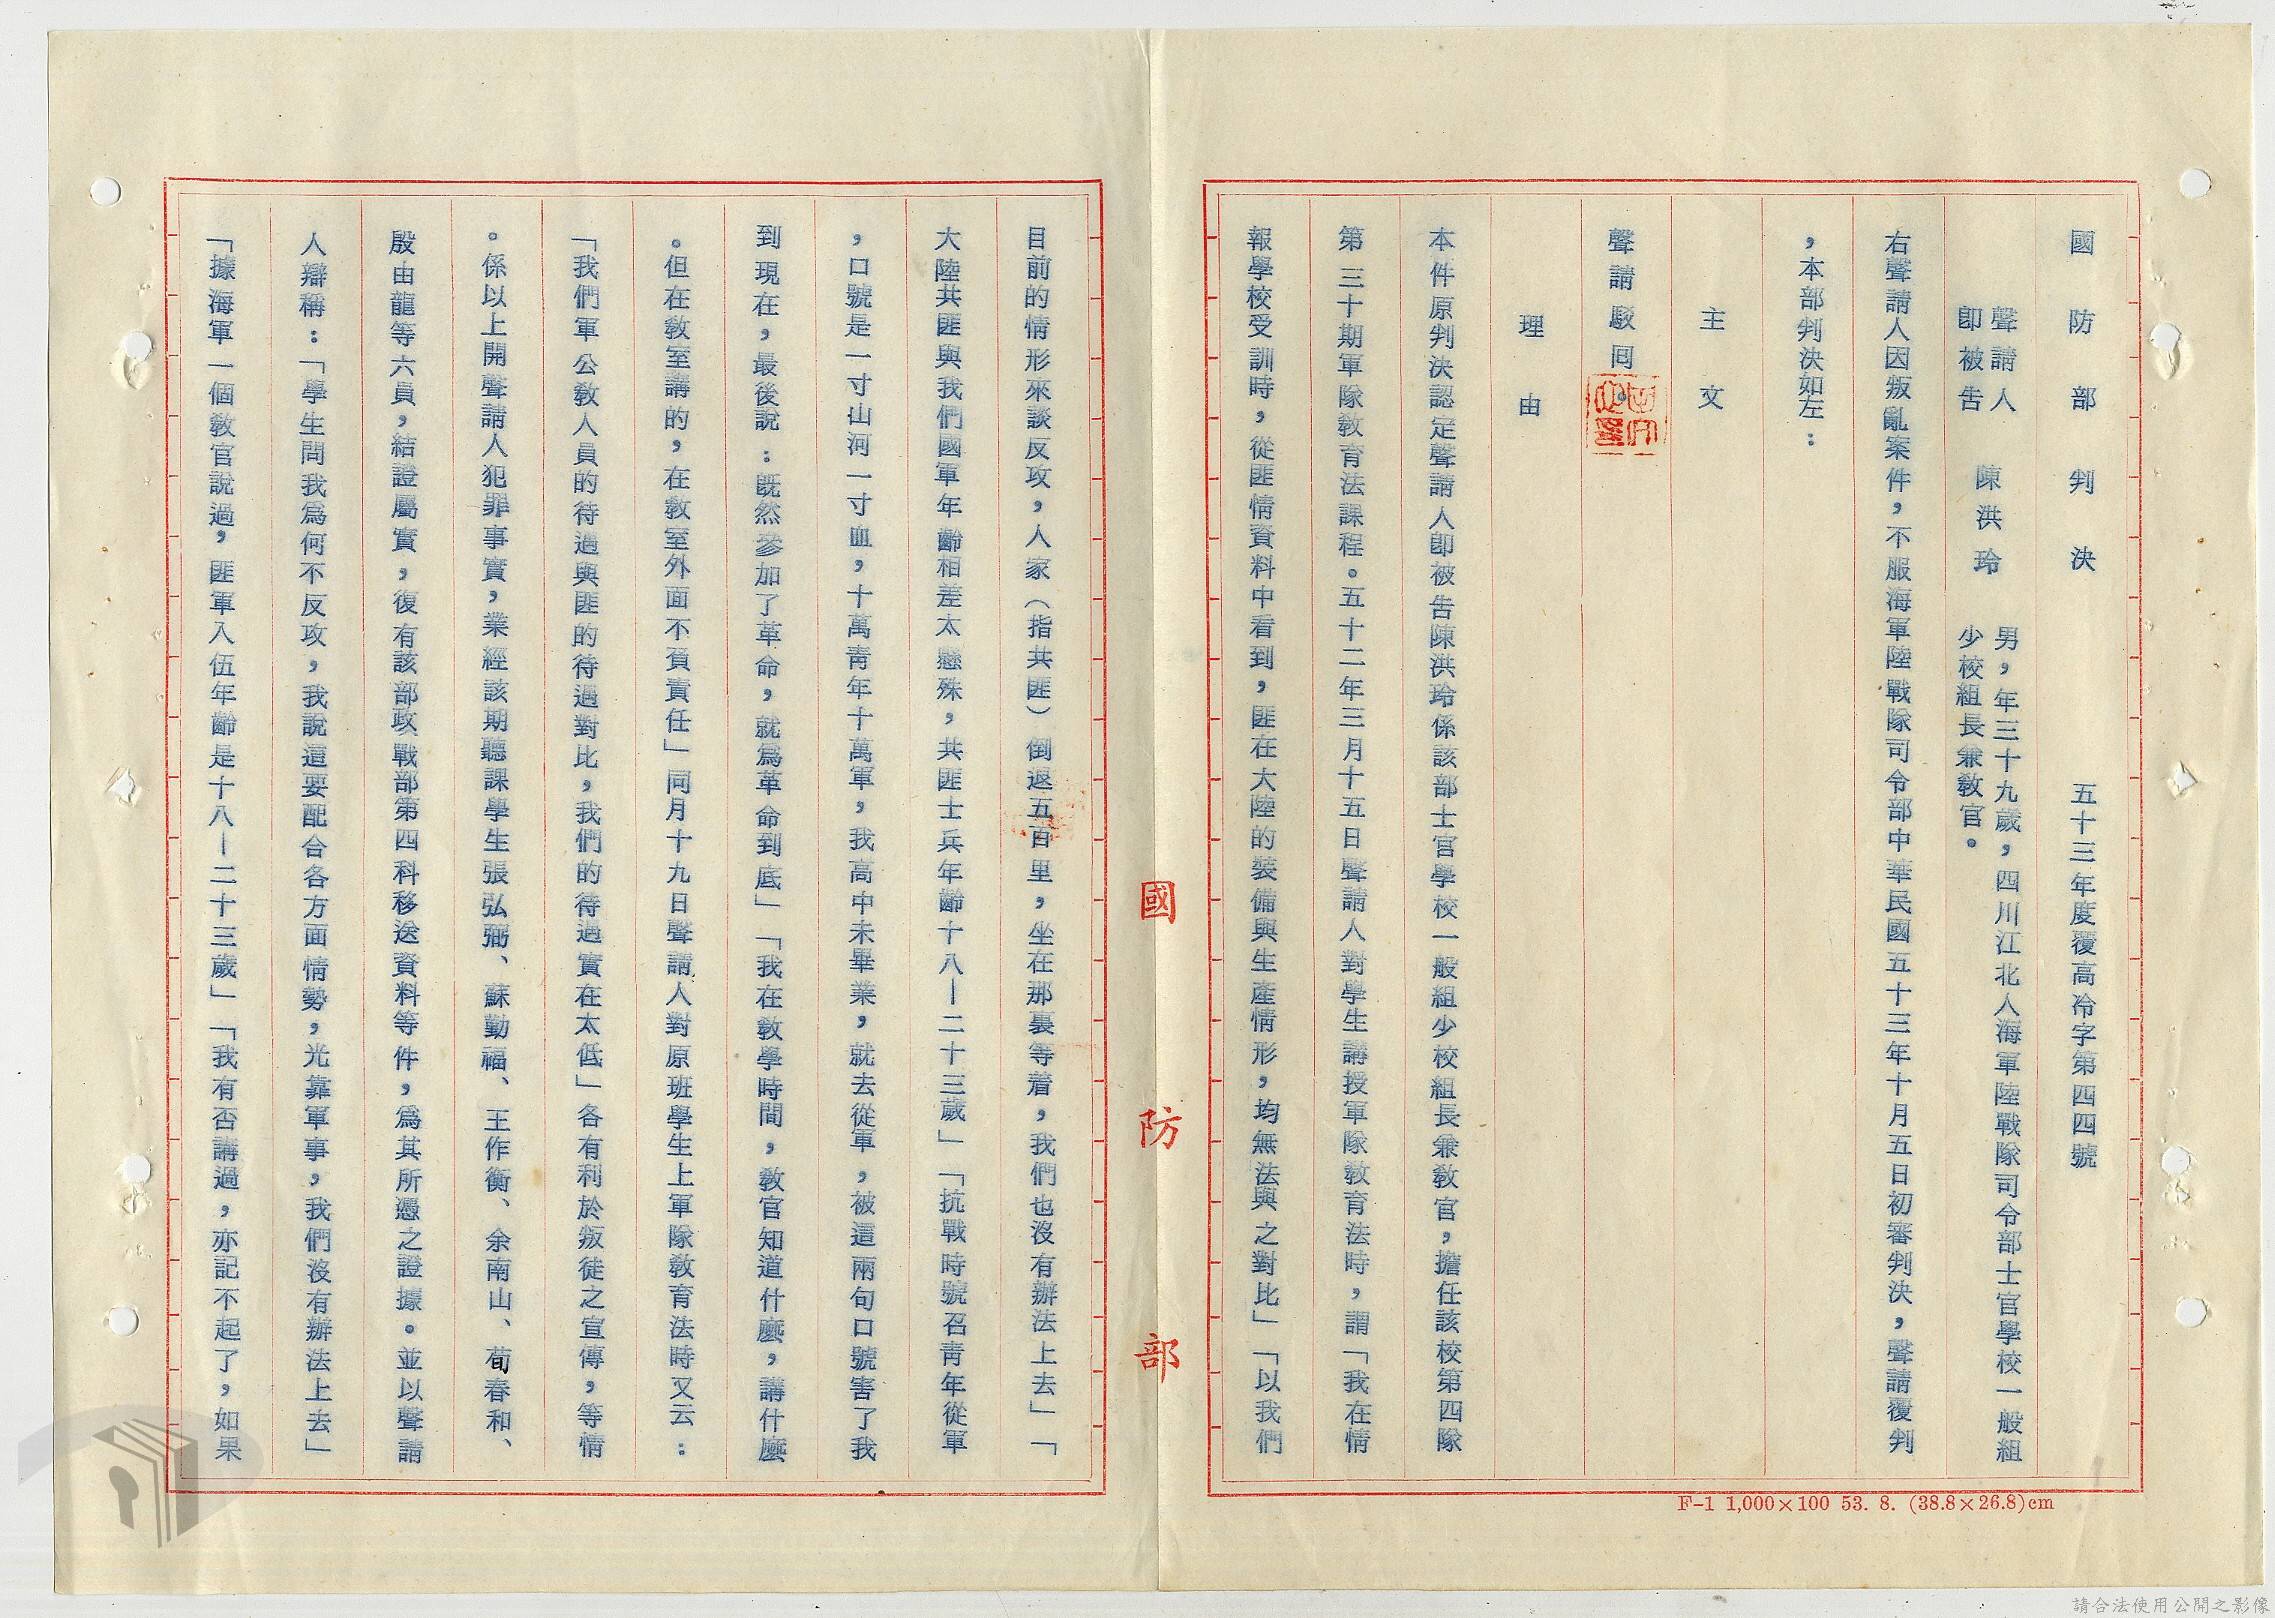 國防部判決　五十三年度覆高冷字第四四號
聲請人
即被告　陳洪玲　男，年三十九歲，四川江北人海軍陸戰隊司令部士官學校一般組
少校組長兼教官。
右聲請人因叛亂案件，不服海軍陸戰隊司令部中華民國五十三年十月五日初審判決，聲請覆判
，本部判決如左：
主文
聲請駁回。
理由
本件原判決認定聲請人即被告陳洪玲係該部士官學校一般組少校組長兼教官，擔任該校第四隊
第三十期軍隊教育法課程。五十二年三月十五日聲請人對學生講授軍隊教育法時，謂「我在情
報學校受訓時，從匪情資料中看到，匪在大陸的裝備與生產情形，均無法與之對比」「以我們
目前的情形來談反攻，人家（指共匪）倒退五百里，坐在那裏等着，我們也沒有辦法上去」「
大陸共匪與我們國軍年齡相差太懸殊，共匪士兵年齡十八－二十三歲」「抗戰時號召青年從軍
，口號是一寸山河一寸血，十萬青年十萬軍，我高中未畢業，就去從軍，被這兩句口號害了我
到現在，最後說：既然參加了革命，就為革命到底」「我在教學時間，教官知道什麼，講什麼
。但在教室講的，在教室外面不負責任」同月十九日聲請人對原班學生上軍隊教育法時又云：
「我們軍公教人員的待遇與匪的待遇對比，我們的待遇實在太低」各有利於叛徒之宣傳，等情
。係以上開聲請人犯罪事實，業經該期聽課學生張弘弼、蘇勤福、王作衡、余南山、荀春和、
殷由龍等六員，結證屬實，復有該部政戰部第四科移送資料等件，為其所憑之證據。並以聲請
人辯稱：「學生問我為何不反攻，我說這要配合各方面情勢，光靠軍事，我們沒有辦法上去」
「據海軍一個教官說過，匪軍入伍年齡是十八－二十三歲」「我有否講過，亦記不起了，如果
國防部
F-1 1,000×100 53. 8. (38.8×26.8)cm
請合法使用公開之影像